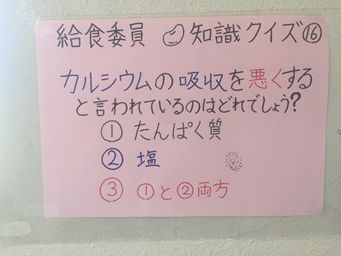 給食委員 知識クイズ⑯
カルシウムの吸収を悪くする
と言われているのはどれでしょう?
① たんぱく質
② 塩
③ ①と②両方